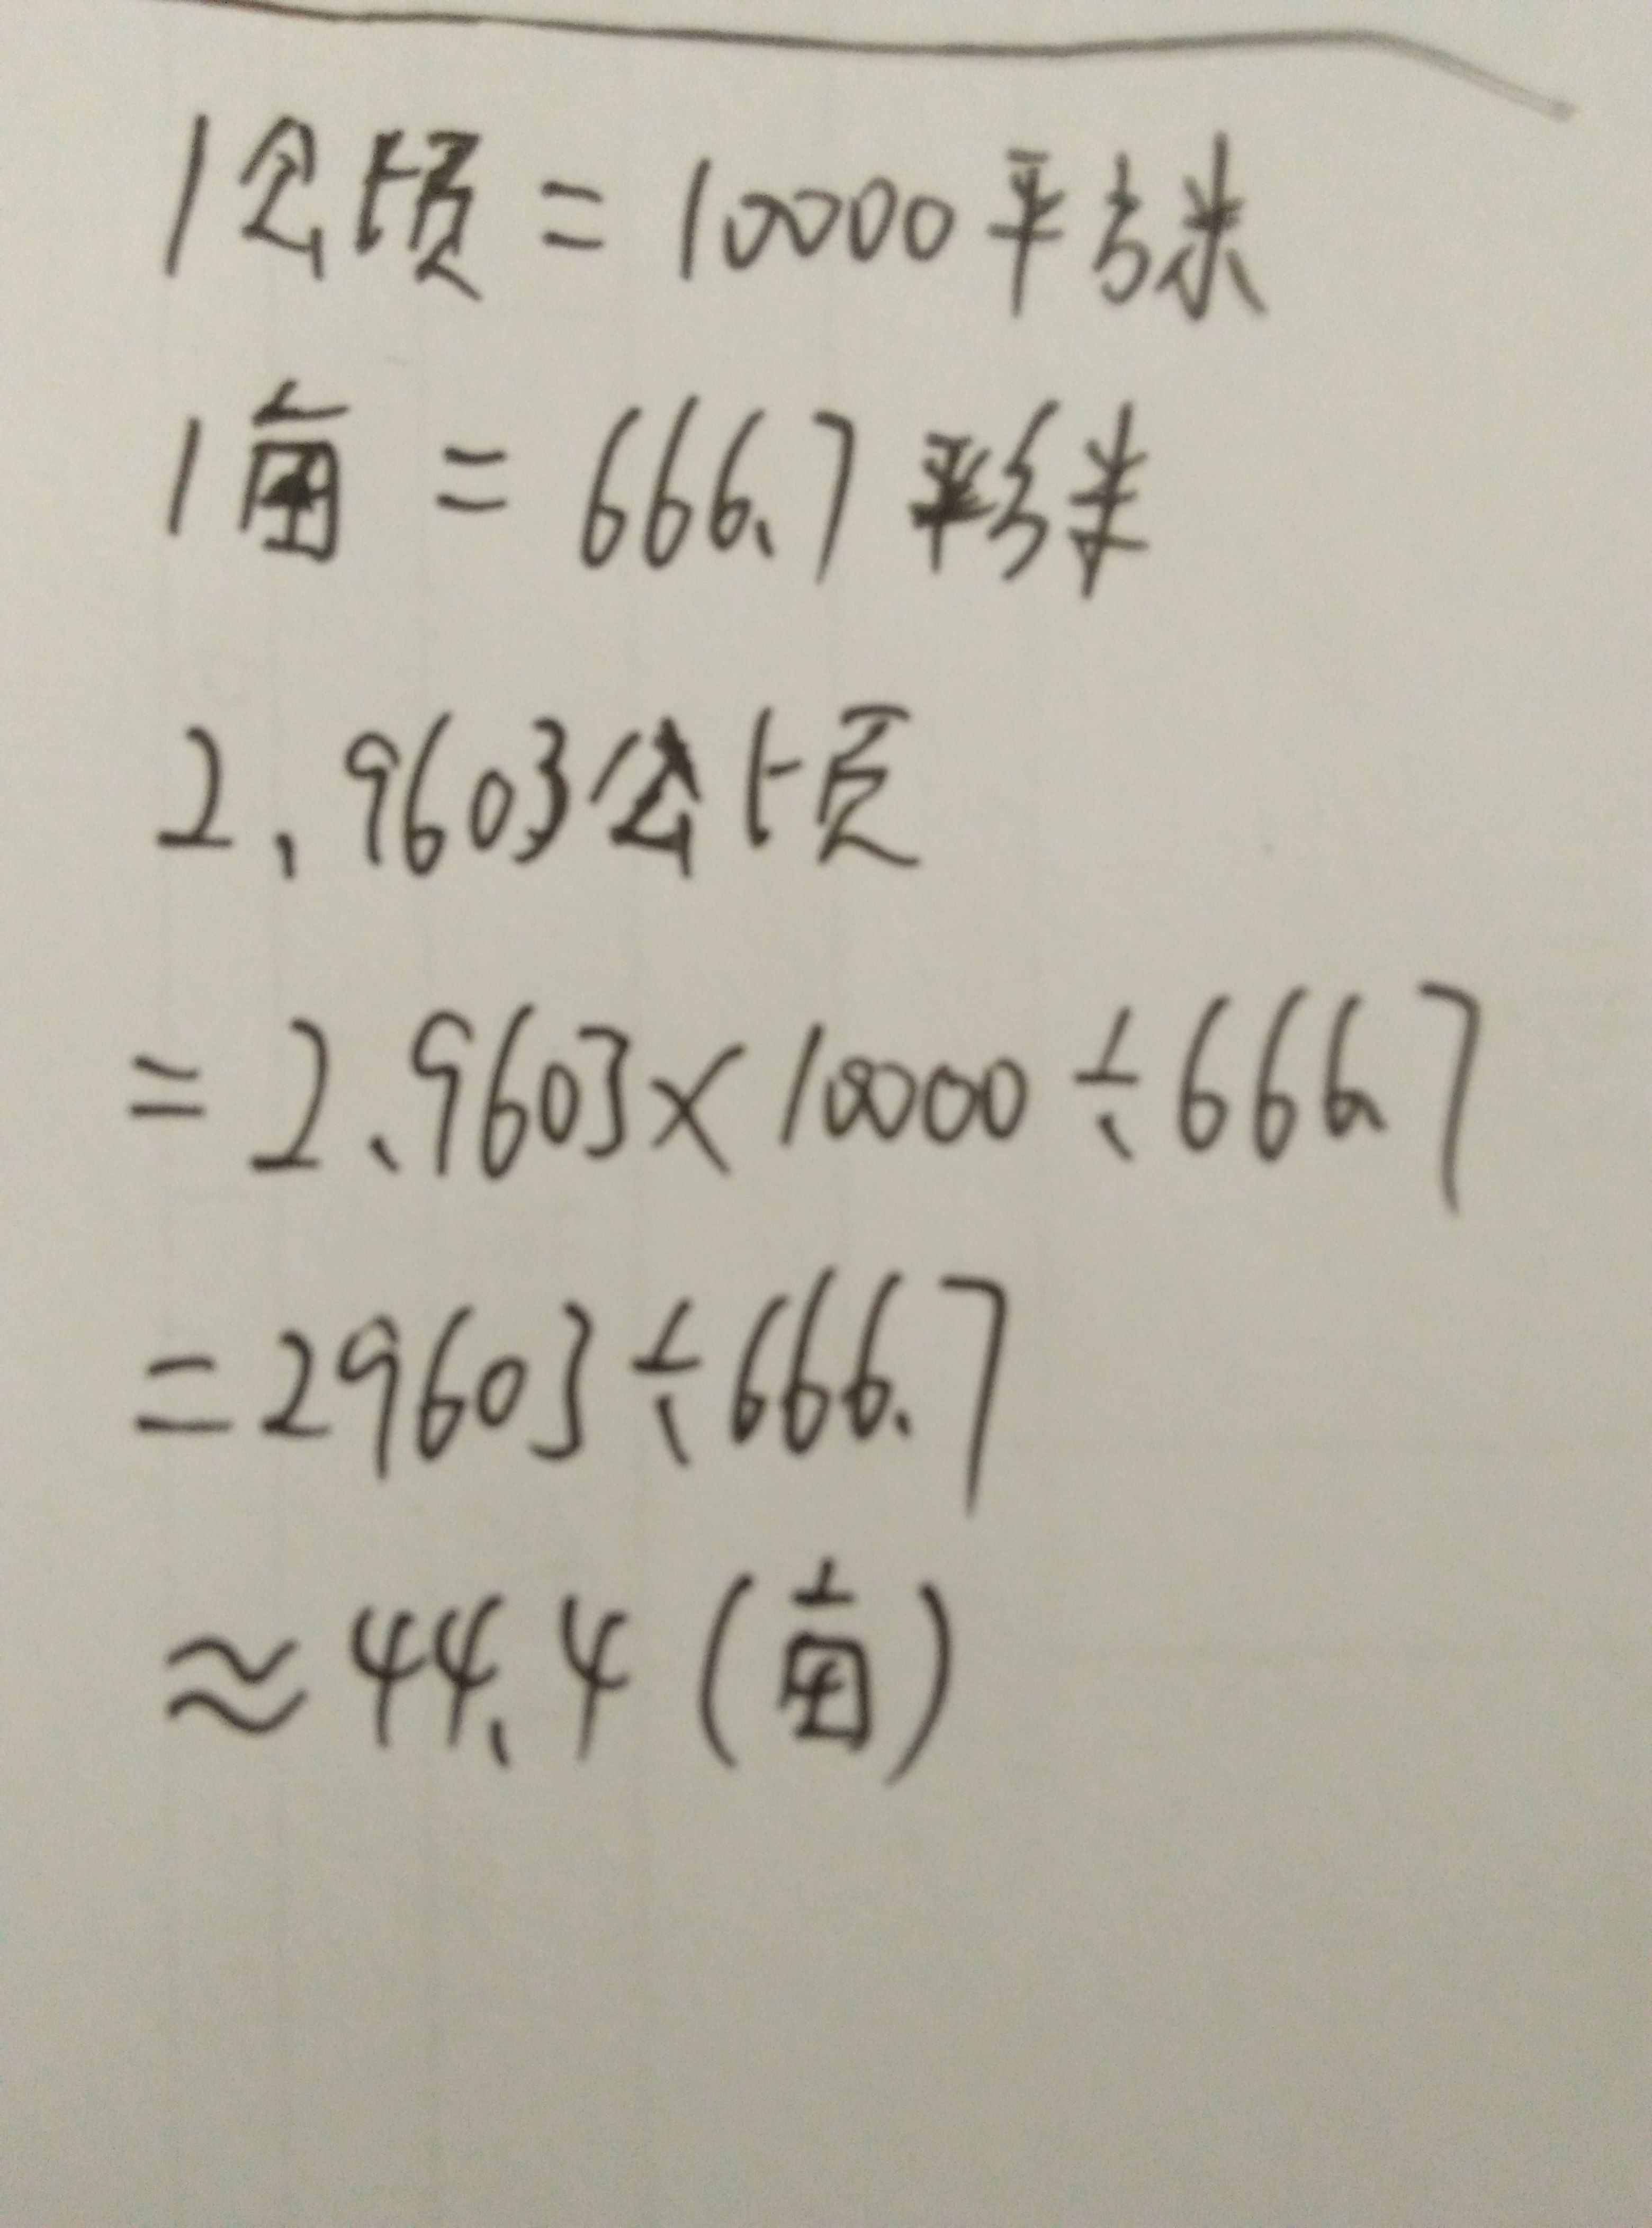 1公顷=10000平方米
1亩=666.7平方米
2.9603公顷
=2.9603×10000÷666.7
=29603÷666.7
≈44.4(亩)